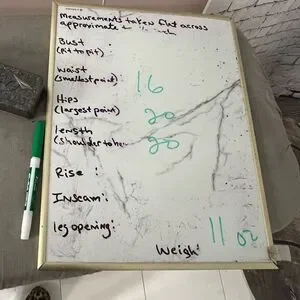 Measurements taken flat across
approximate
Bust:
(Pit to pit)
Waist: 16
(smallest point)
Hips 20
(largest point)
length 20
(shoulder to hem
Rise:
Inseam:
leg opening:
Weigh: 11 oz